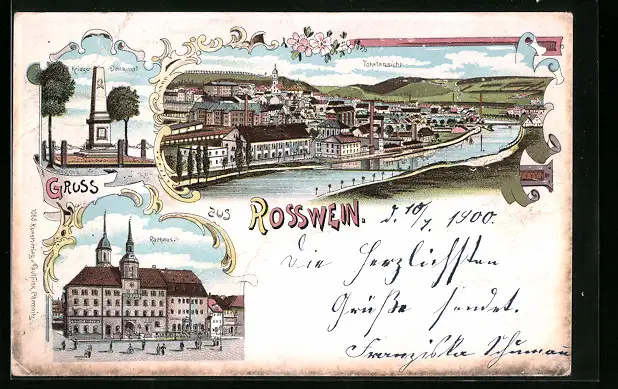 Krieger Denkmal
Totalansicht
GRUSS
AUS
ROSSWEIN.
d. 10/7 1900.
Rathaus.
Die herzlichsten
Grüße sendet.
Franziska